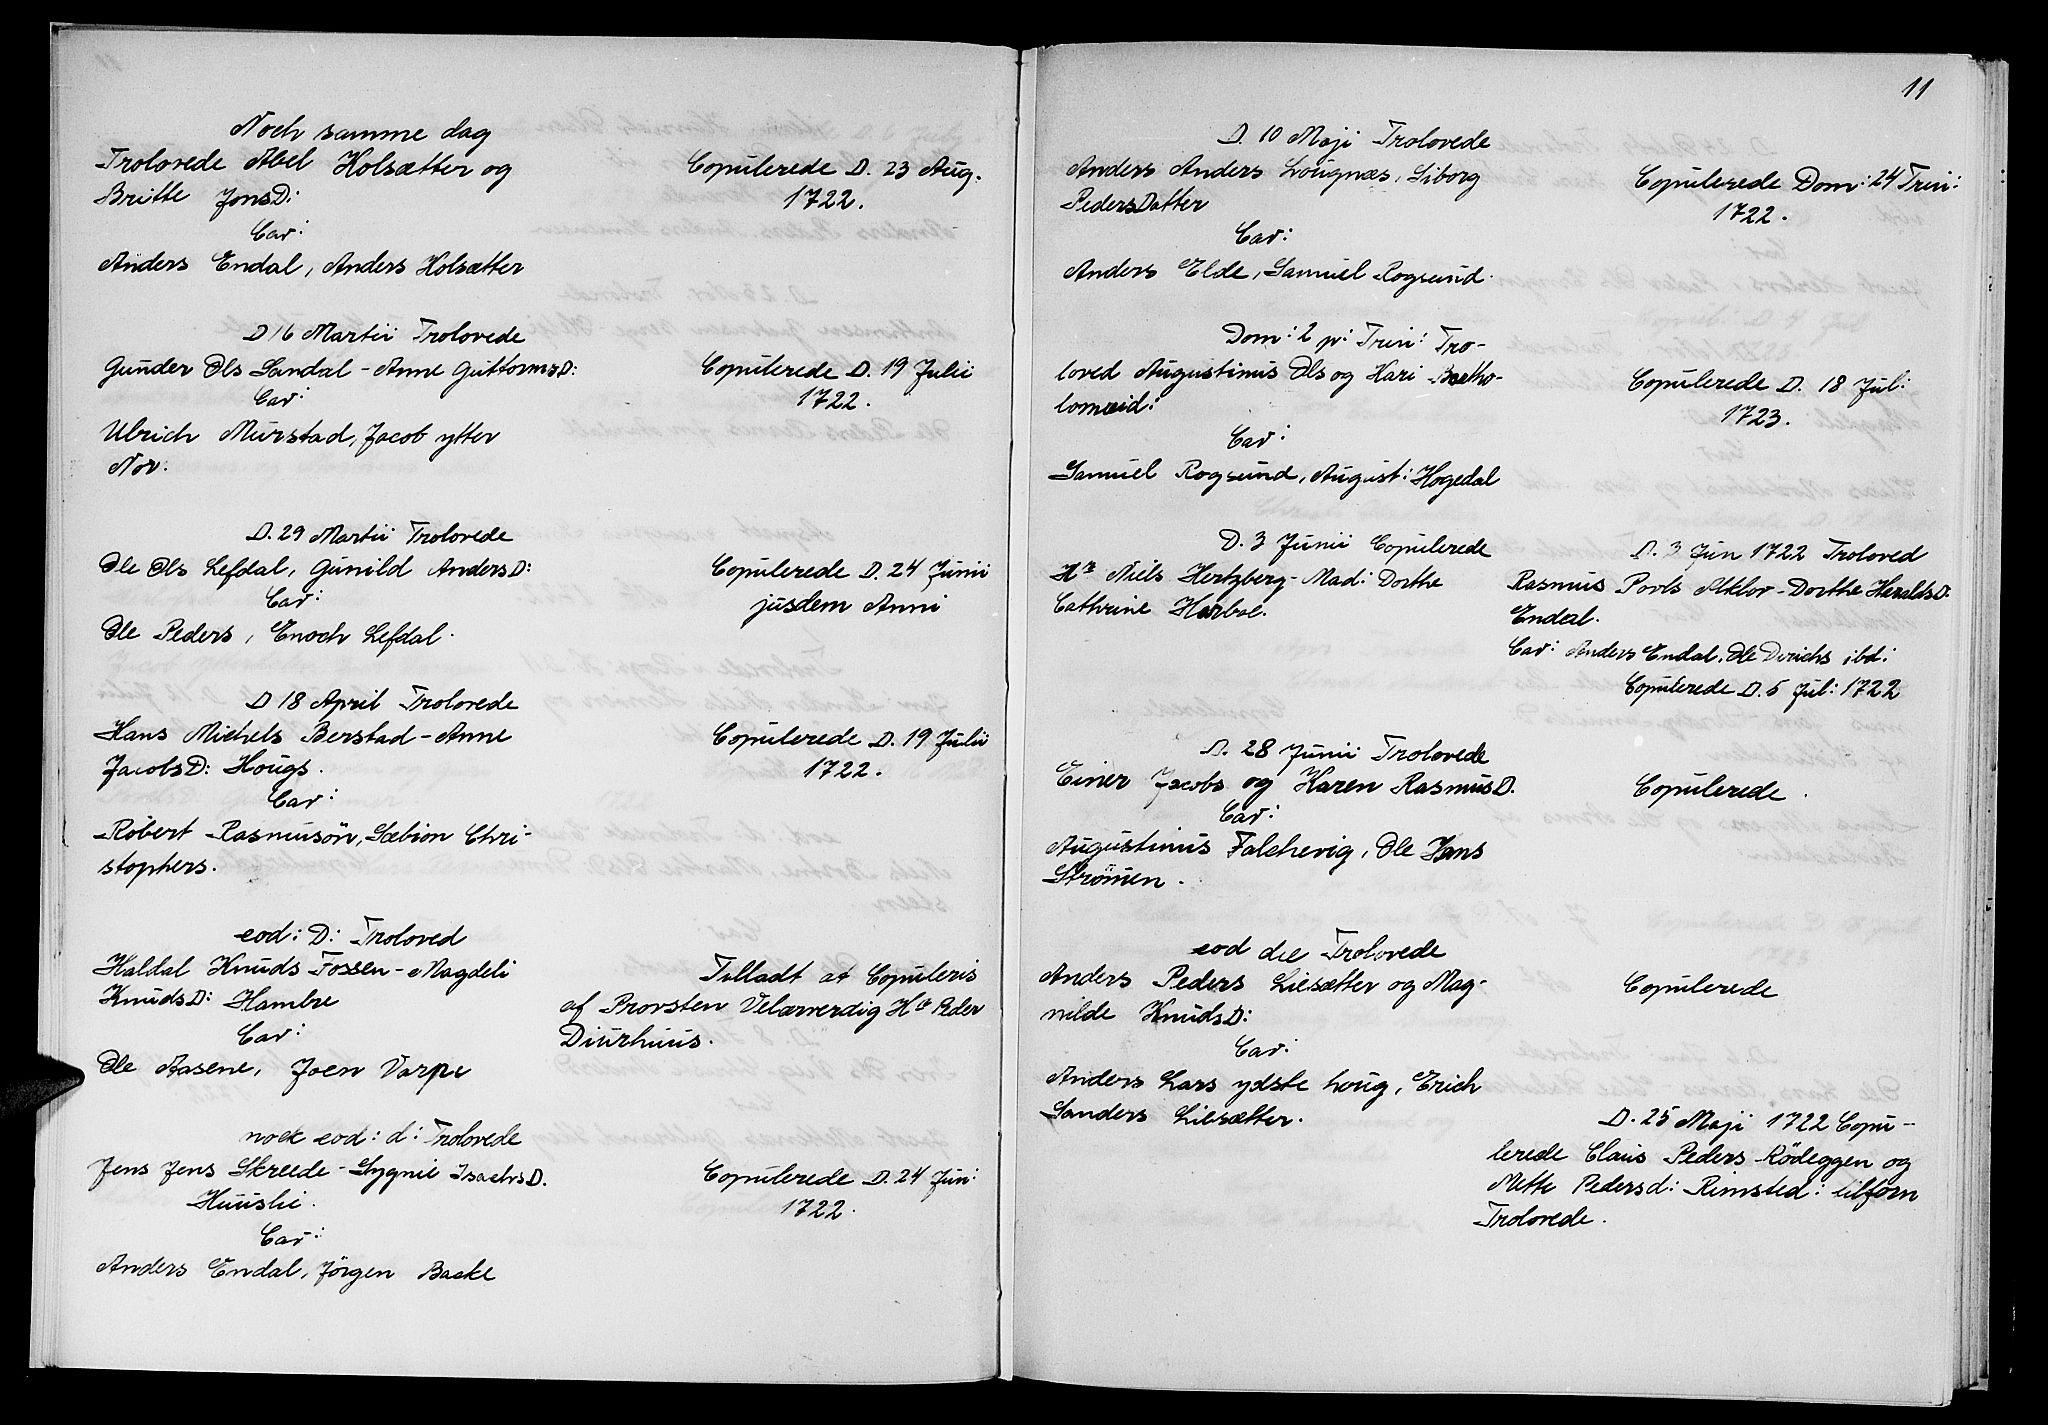 Noch samme dag
Trolovede Abel Holsætter og
Britte JonsD:
Cav:
Anders Endal, Anders Holsætter
Copulerede D. 23 Aug.
1722.
D 16 Martii Trolovede
Gunder Ols Sandal - Anne GuttormsD:
Cav:
Ulrich Murstad, Jacob ytter
Nor.
Copulerede D. 19 Julii
1722.
D. 29 Martii Trolovede
Ole Ols Lefdal, Gunild AndersD:
Cav:
Ole Peders, Enoch Lefdal.
Copulerede D. 24 Junii
jusdem Anni
D 18 April Trolovede
Hans Michels Berstad - Anne
JacobsD: Hougs.
Cav:
Robert Rasmusön, Sæbion Chri-
stophers.
Copulerede D. 19 Julii
1722.
eod: D: Troloved
Haldal Knuds Fossen - Magdeli
KnudsD: Hambre
Cav:
Ole Aasene, Joen Varpe
Tilladt at Copuleris
af Provsten Velærverdig Hr Peder
Diurhuus.
nock eod: d: Trolovede
Jens Jens Skreede - Sygnie IsachsD.
Huuslii.
Cav:
Anders Endal, Jörgen Bakke
Copulerede D. 24 Jun:
1722.
11
D. 10 Maji Trolovede
Anders Anders Lougnæs, Siborg
PedersDatter
Cav:
Anders Elde, Samuel Rogsund.
Copulerede Dom: 24 Trin:
1722.
Dom: 2 p: Trin: Tro-
loved Augustinus Ols og Kari Bartho-
lomæid:
Cav:
Samuel Rogsund, August: Hogedal
Copulerede D. 18 Jul:
1723.
D. 3 Junii Copulerede
Hr Niels Hertzberg - Mad: Dorthe
Cathrine Harboe.
D. 3 Jun 1722 Troloved
Rasmus Povls Alklov - Dorthe HeraldsD.
Endal.
Cav: Anders Endal, Ole Dirichs ibd:
Copulerede D. 5 Jul: 1722
D. 28 Junii Trolovede
Einer Jacobs og Karen RasmusD.
Cav:
Augustinus Falchevig, Ole Jans
Strömen.
Copulerede.
eod die Trolovede
Anders Peders Liesætter og Mag-
nilde KnudsD:
Cav:
Anders Lars ydste houg, Erich
Sanders Liesætter.
Copulerede
D. 25 Maji 1722 Copu-
lerede Claus Peders Rödeggen og
Mette Pedersd: Rimsted: tilforn
Trolovede.